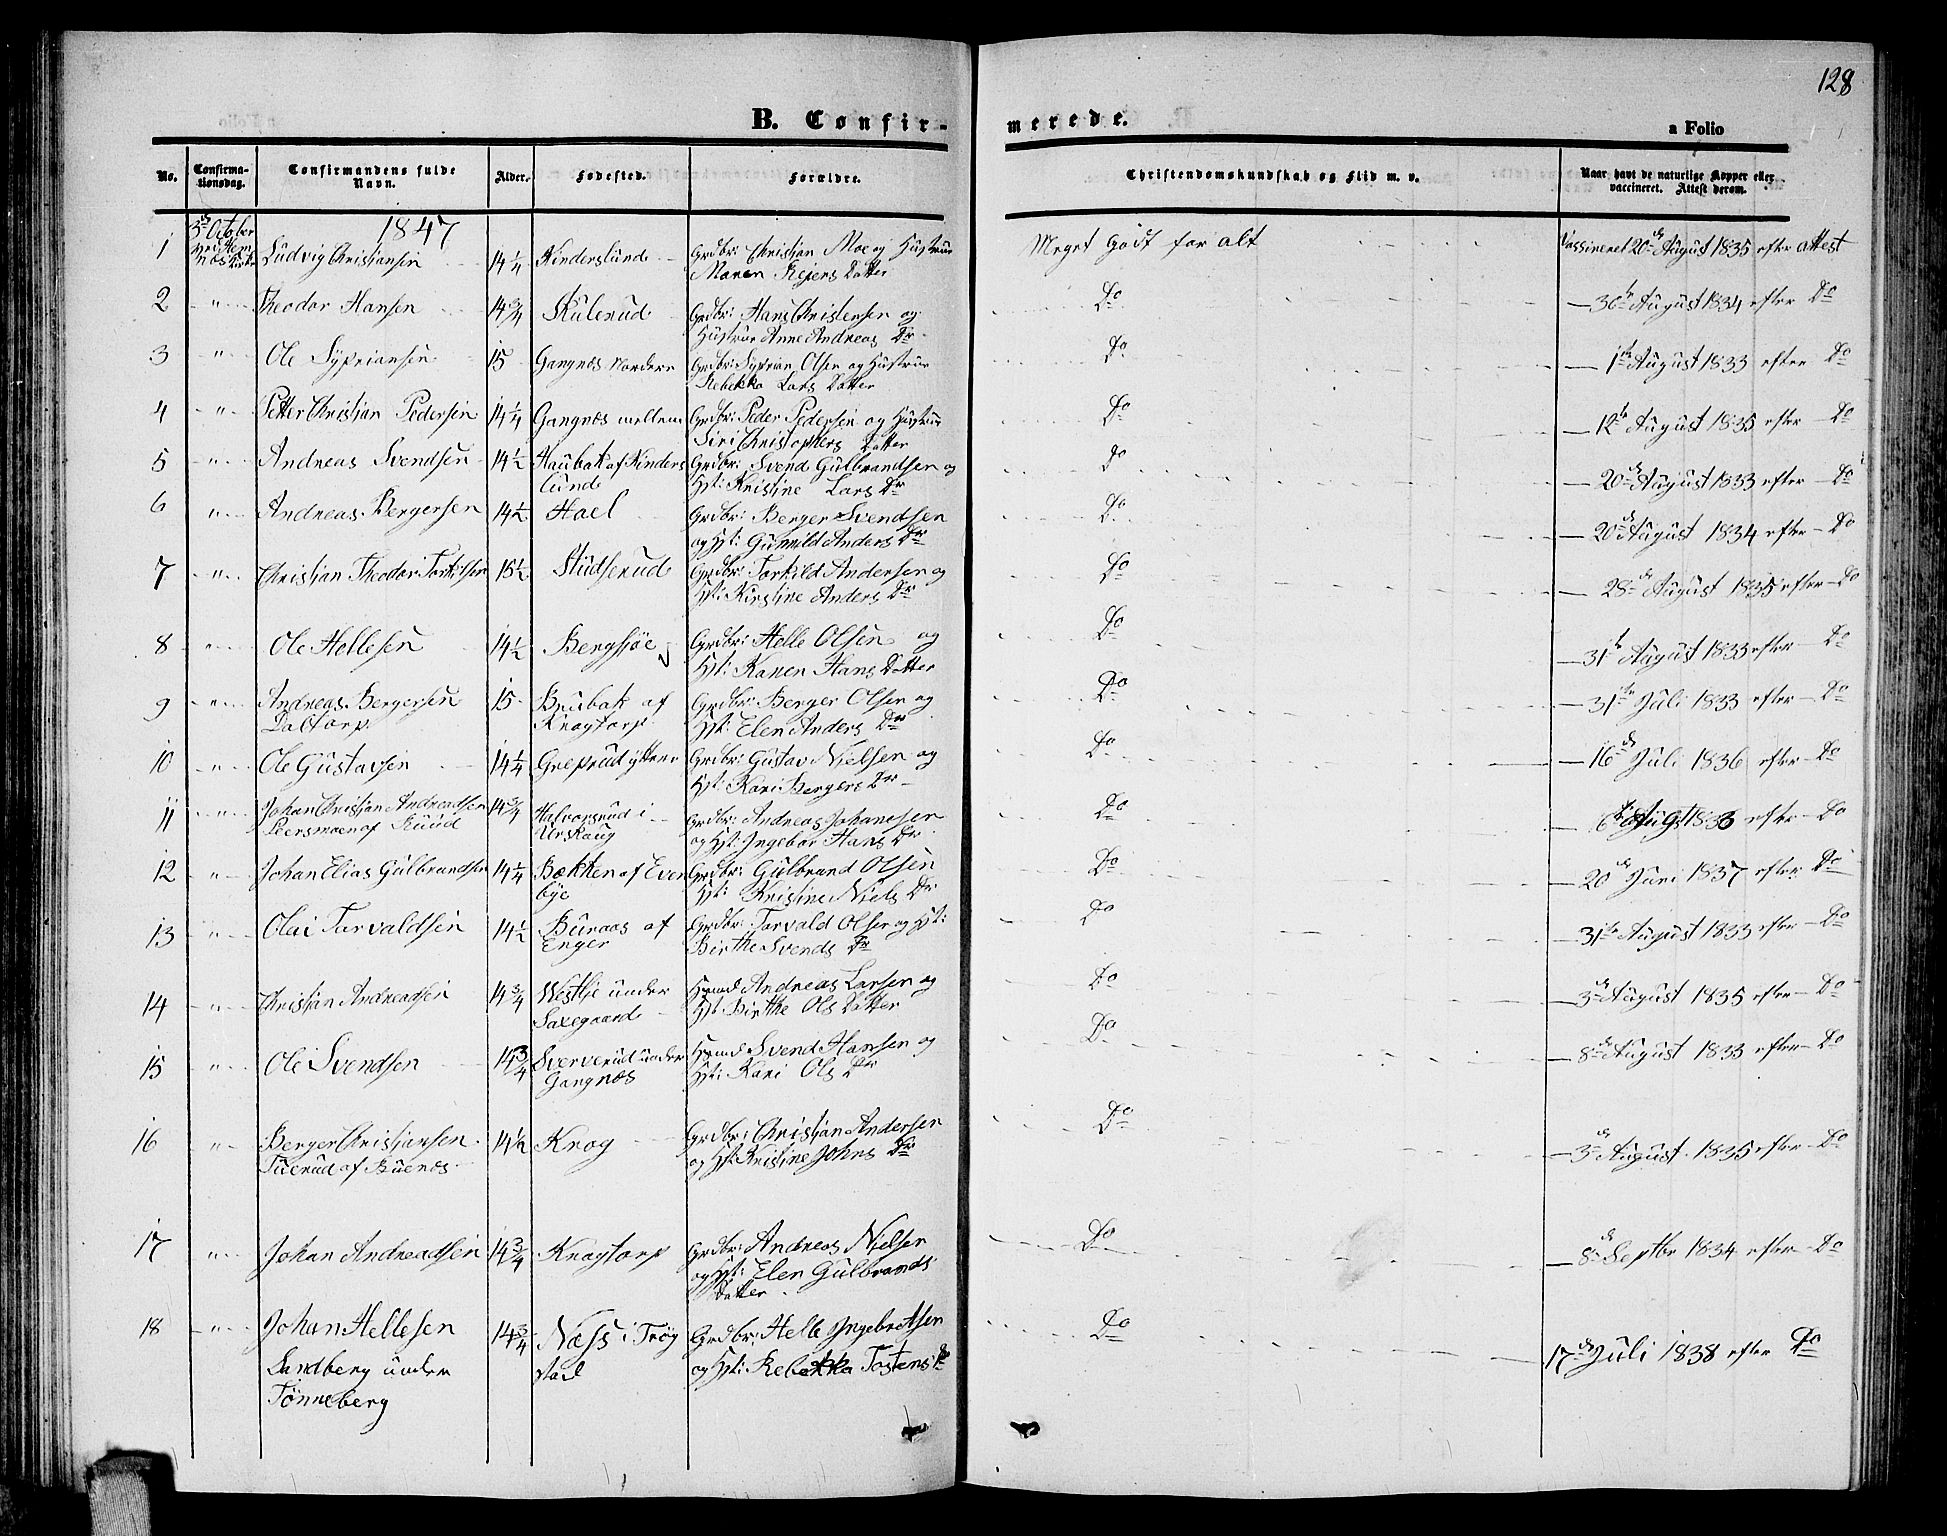 128
B. Confir-
merede.
a Folio
No.
Confirma-
tionsdag.
Confirmandens fulde
Navn.
Alder.
Fødested.
Forældre.
Christendomskundskab og Flid m. v.
Naar havt de naturlige Kopper eller
vaccineret. Attest derom.
1847
3de October
1 Ludvig Christiansen 14 1/4 Kinderslunde Grdbr: Christian Moe og Hustrue
Maren Rejers Datter
Meget Godt for alt
Vassineret 20de August 1835 efter attest
2 " Theodor Hansen 14 3/4 Skulerud Grdbr: Hans Christensen og
Hustrue Anne Andreas Dr
Do 30te August 1834 efter Do
3 " Ole Sypriansen 15 Gangnæs Nordere Grdbr: Syprian Olsen og Hustrue
Rebekka Lars Datter
Do 1te August 1833 efter Do
4 " Petter Christian Pedersen 14 1/4 Gangnæs mellem Grdbr: Peder Pedersen og Hustrue
Siri Christophers Datter
Do 12te August 1835 efter Do
5 " Andreas Svendsen 14 1/2 Haubak af Kinders
lunde
Grdbr: Svend Gulbrandsen og
Hst: Kristine Lars Dr
Do 20de August 1833 efter Do
6 " Andreas Bergersen 14 1/2 Hael Grdbr: Berger Svendsen
og Hst: Gunnild Anders Dr
Do 20de August 1834 efter Do
7 " Christian Theodor Torkilsen 15 1/2 Studserud Grdbr: Torkild Andersen og
Hst: Kirstine Anders Dr
Do 28de August 1835 efter Do
8 " Ole Hellesen 14 1/2 Bergsjøe Grdbr: Helle Olsen og
Hst: Karen Hans Datter
Do 31te August 1833 efter Do
9 " Andreas Bergersen
Daltorp
15 Brubak af
Krogtorp
Grdbr: Berger Olsen og
Hst: Elen Anders Dr
Do 31te Juli 1833 efter Do
10 " Ole Gustavsen 14 1/4 Greprud yttere Grdbr: Gustav Nielsen og
Hst: Kari Bergers Dr
Do 16de Juli 1836 efter Do
11 " Johan Christian Andreadsen
Leersmoen af Ruud
14 3/4 Halvorsrud i
Urskaug
Grdbr: Andreas Johanesen
og Hst: Ingebor Hans Dr
Do 6te August 1836 efter Do
12 " Johan Elias Gulbrandsen 14 1/4 Bækken af Even
bye
Grdbr: Gulbrand Olsen
Hst: Kristine Niels Dr
Do 20de Juni 1837 efter Do
13 " Olai Torvaldsen 14 1/2 Buraas af
Enger
Grdbr: Torvald Olsen og Hst:
Birthe Svends Dr
Do 31te August 1833 efter Do
14 " Christian Andreadsen 14 3/4 Westlje under
Saxegaard
Hsmd Andreas Larsen og
Hst Birthe Ols Datter
Do 3de August 1835 efter Do
15 " Ole Svendsen 14 3/4 Sververud under
Gangnæs
Hsmd Svend Hansen og
Hst: Kari Ols Dr
Do 8de August 1833 efter Do
16 " Berger Christjansen
Tuerud af Buenæs
14 1/2 Krog Grdbr: Christjan Andersen
og Hst: Kristine Johns Dr
Do 3de August 1835 efter Do
17 " Johan Andreadsen 14 3/4 Krogtorp Grdbr: Andreas Nielsen
og Hst: Elen Gulbrands
Datter
Do 8de Septbr 1834 efter Do
18 " Johan Hellesen
Sandberg under
Tønneberg
14 3/4 Næss i Trøg
stad
Grdbr: Helle Ingebretsen
og Hst: Rebekka Tostens Dr
Do 17de Juli 1838 efter Do